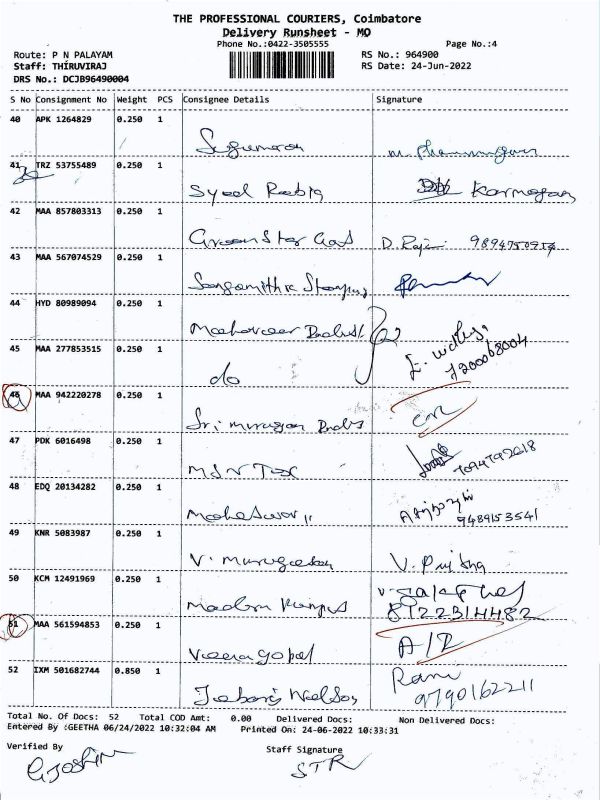 THE PROFESSIONAL COURIERS, Coimbatore
Delivery Runsheet - MO
Phone No.:0422-3505555 Page No.:4
Route: P N PALAYAM RS No.: 964900
Staff: THIRUVIRAJ RS Date: 24-Jun-2022
DRS No.: DCJB96490004
S No Consignment No Weight PCS Consignee Details Signature
40 APK 1264829 0.250 1
41 TRZ 53755489 0.250 1
Syed Rabiq
42 MAA 857803313 0.250 1
Green Star Gas D. Raji 9894750954
43 MAA 567074529 0.250 1
44 HYD 80989094 0.250 1
45 MAA 277853515 0.250 1
7200068004
do
46 MAA 942220278 0.250 1
Sri murugan
47 PDK 6016498 0.250 1
MSN Tex 7094792618
48 EDQ 20134282 0.250 1
9489153541
49 KNR 5083987 0.250 1
V. Murugesan V. Pritha
50 KCM 12491969 0.250 1
8122314482
51 MAA 561594853 0.250 1
A/R
Veeragopal
52 IXM 501682744 0.850 1
Rani
9790162211
Total No. Of Docs: 52 Total COD Amt: 0.00 Delivered Docs: Non Delivered Docs:
Entered By :GEETHA 06/24/2022 10:32:04 AM Printed On: 24-06-2022 10:33:31
Verified By Staff Signature
STR